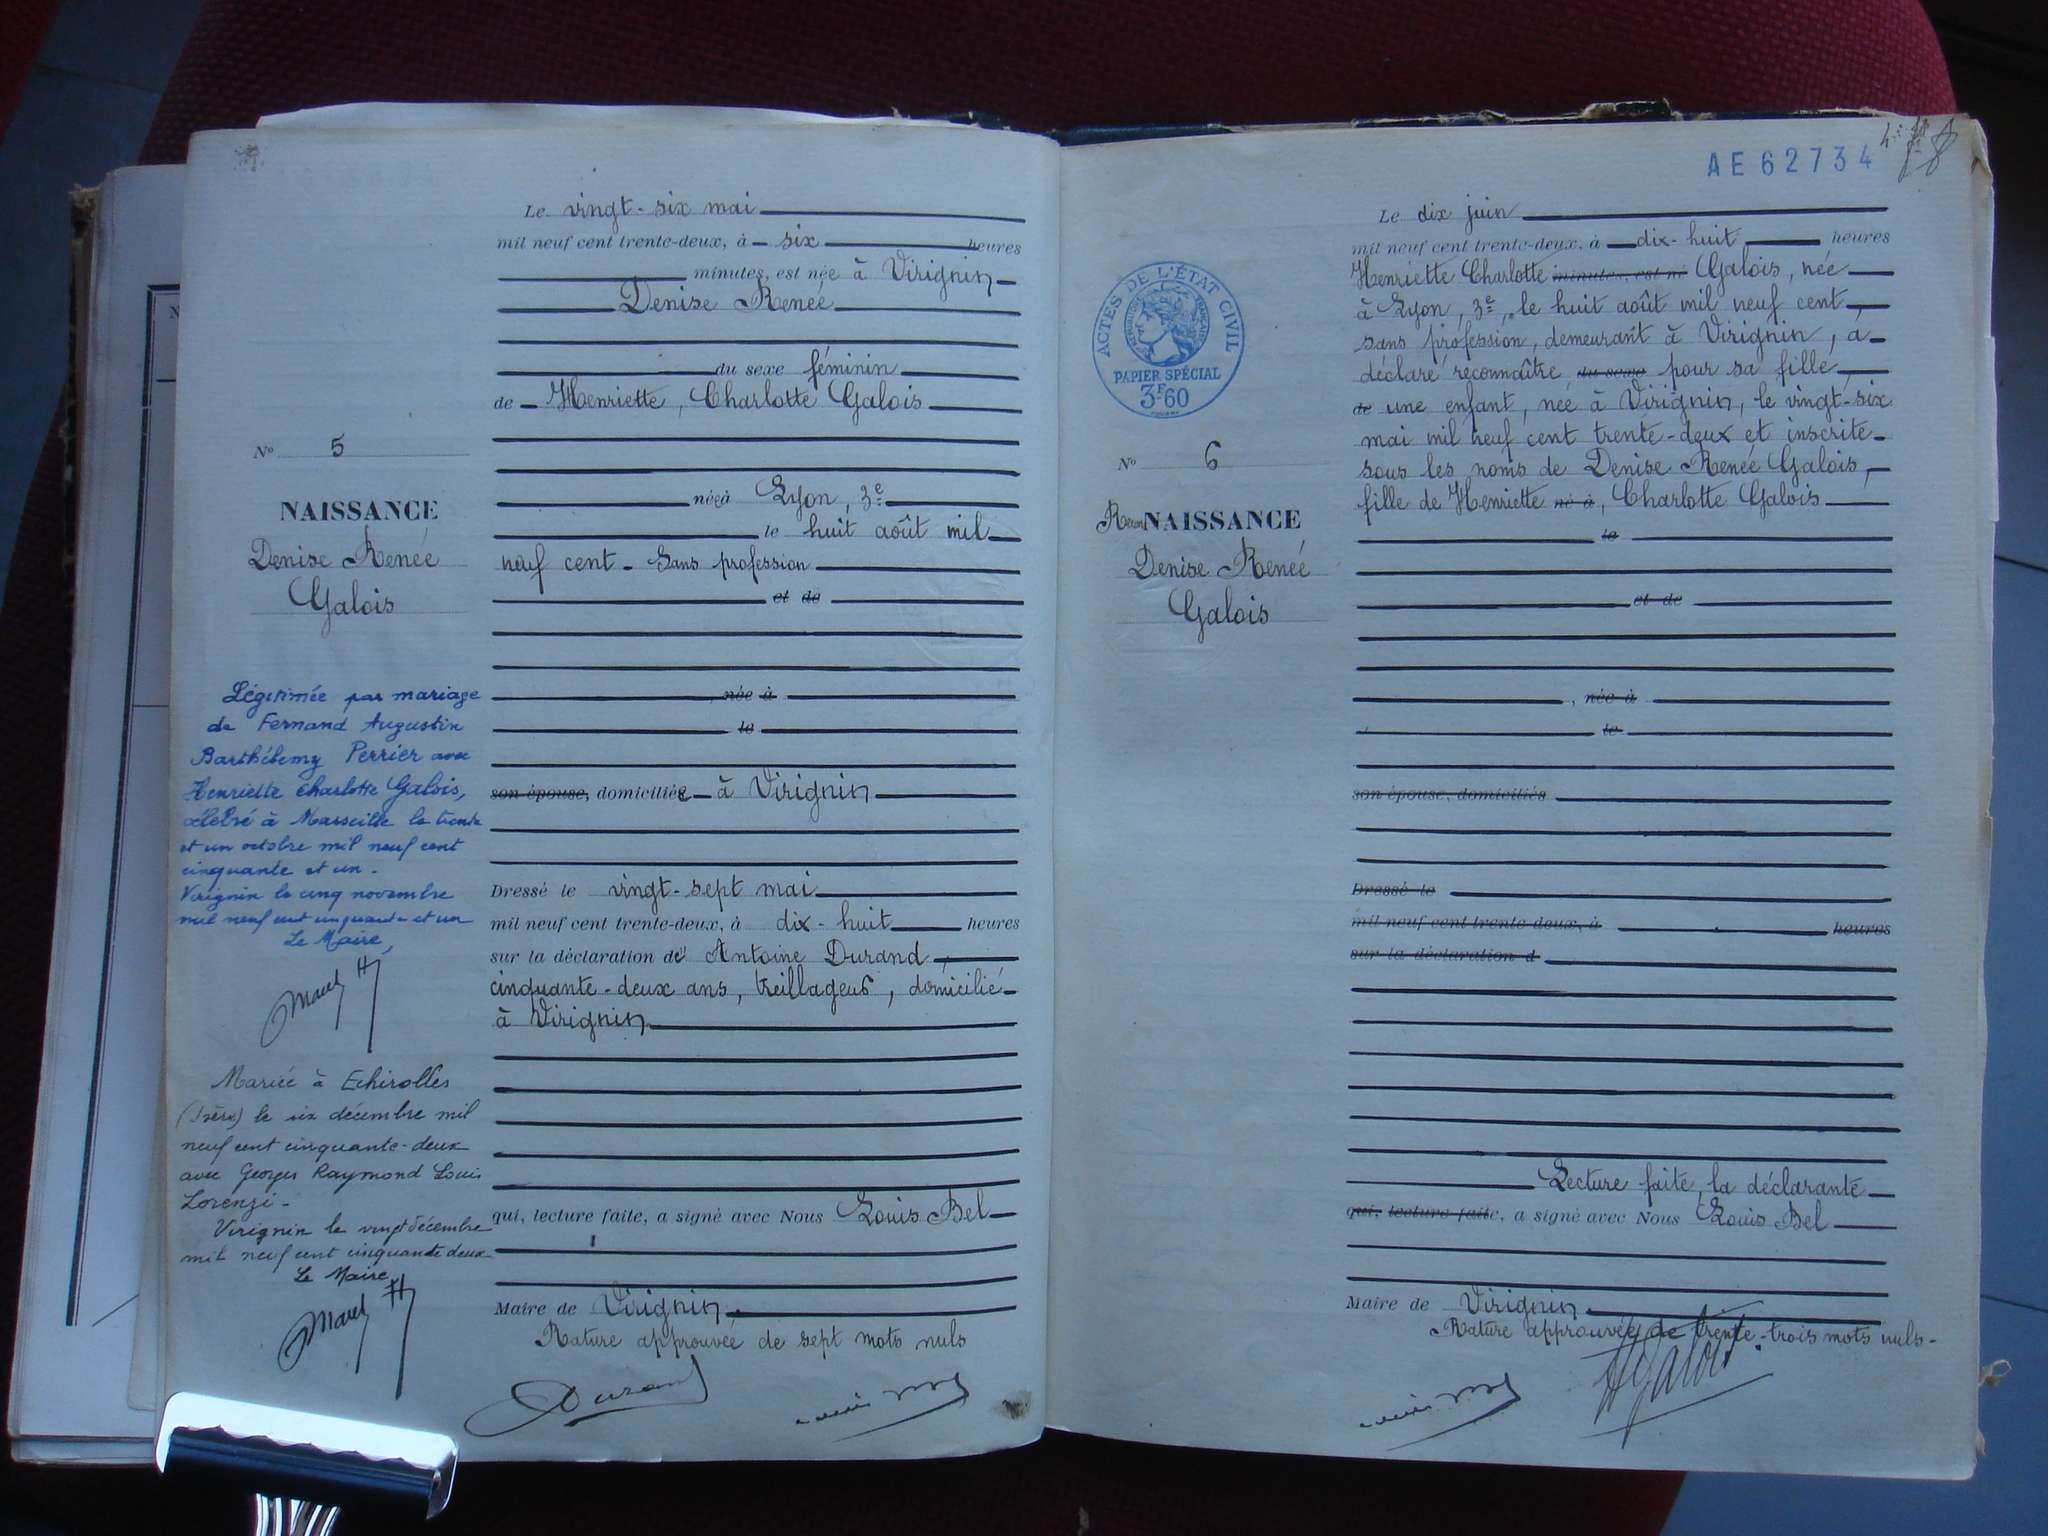 Le vingt-six mai
mil neuf cent trente-deux, à six heures
minutes, est née à Virignin
Denise Renée
du sexe féminin
de Henriette, Charlotte Galois
N° 5
née à Lyon, 3e
NAISSANCE
le huit août mil
Denise Renée
neuf cent - Sans profession
Galois
et de
, née à
le
son épouse, domiciliée à Virignin
Légitimée par mariage
de Fernand Augustin
Barthélemy Perrier avec
Henriette Charlotte Galois,
célébré à Marseille le trente
et un octobre mil neuf cent
cinquante et un -
Virignin le cinq novembre
mil neuf cent cinquante et un
Le Maire,
Dressé le vingt-sept mai
mil neuf cent trente-deux, à dix-huit heures
sur la déclaration de Antoine Durand,
cinquante-deux ans, treillageur, domicilié
à Virignin
Mariée à Echirolles
(Isère) le six décembre mil
neuf cent cinquante-deux
avec Georges Raymond Louis
Lorenzi -
Virignin le vingt décembre
mil neuf cent cinquante deux
Le Maire
qui, lecture faite, a signé avec Nous Louis Bel
Maire de Virignin.
Rature approuvée de sept mots nuls
Durand
AE 62734
8
Le dix juin
mil neuf cent trente-deux, à dix-huit heures
Henriette Charlotte minutes, est né Galois, née
à Lyon, 3e, le huit août mil neuf cent,
sans profession, demeurant à Virignin, a
déclaré reconnaître du sexe pour sa fille,
de une enfant, née à Virignin, le vingt-six
mai mil neuf cent trente-deux et inscrite
sous les noms de Denise Renée Galois,
fille de Henriette né à, Charlotte Galois
le
et de
, née à
le
son épouse, domiciliés
Dressé le
mil neuf cent trente-deux, à heures
sur la déclaration d
ACTES DE L'ÉTAT CIVIL
RÉPUBLIQUE FRANÇAISE
PAPIER SPÉCIAL
3F60
N° 6
Recon NAISSANCE
Denise Renée
Galois
Lecture faite, la déclarante
qui, lecture faite, a signé avec Nous Louis Bel
Maire de Virignin.
Rature approuvée de trente-trois mots nuls -
HGalois